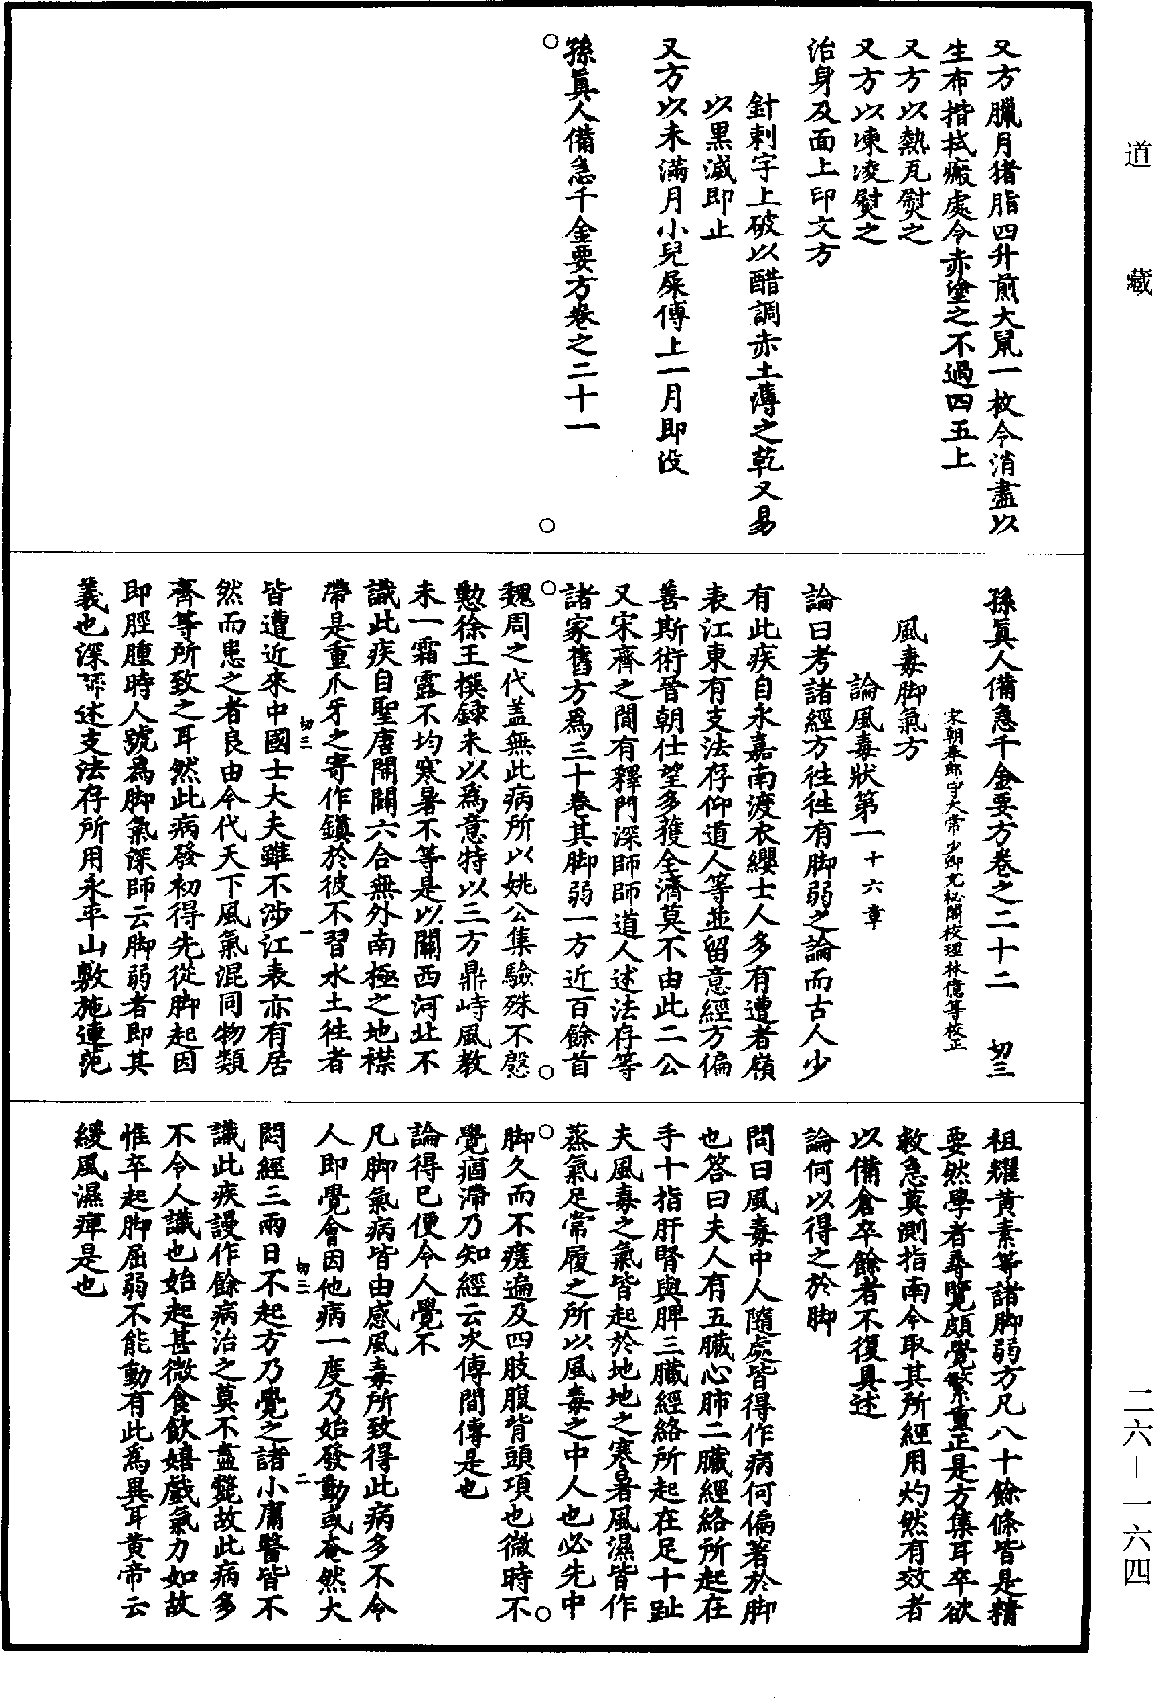 道藏
又方臘月猪脂四升煎大鼠一枚令消盡以
生布揩拭瘢處令赤塗之不過四五上
又方以熱瓦熨之
又方以凍凌熨之
治身及面上印文方
針刺字上破以醋調赤土薄之乾又易
以黑滅即止
又方以未滿月小兒屎傅上一月即沒
孫眞人備急千金要方卷之二十一
孫眞人備急千金要方卷之二十二 切三
宋朝奉郎守太常少卿充秘閣校理林億等校正
風毒脚氣方
論風毒狀第一十六章
論曰考諸經方往往有脚弱之論而古人少
有此疾自永嘉南渡衣纓士人多有遭者嶺
表江東有支法存仰道人等並留意經方偏
善斯術晉朝仕望多獲全濟莫不由此二公
又宋齊之間有釋門深師師道人述法存等
諸家舊方爲三十卷其脚弱一方近百餘首
魏周之代蓋無此病所以姚公集驗殊不慇
懃徐王撰録未以爲意特以三方鼎峙風教
未一霜露不均寒暑不等是以關西河北不
識此疾自聖唐開闢六合無外南極之地襟
帶是重爪牙之寄作鎭於彼不習水土往者
切三 一
皆遭近來中國士大夫雖不涉江表亦有居
然而患之者良由今代天下風氣混同物類
齊等所致之耳然此病發初得先從脚起因
即脛腫時人號爲脚氣深師云脚弱者即其
義也深師述支法存所用永平山敷施連范
祖耀黃素等諸脚弱方凡八十餘條皆是精
要然學者尋覽頗覺繁重正是方集耳卒欲
救急莫測指南今取其所經用灼然有效者
以備倉卒餘者不復具述
論何以得之於脚
問曰風毒中人隨處皆得作病何偏著於脚
也答曰夫人有五臟心肺二臟經絡所起在
手十指肝腎與脾三臟經絡所起在足十趾
夫風毒之氣皆起於地地之寒暑風濕皆作
蒸氣足常履之所以風毒之中人也必先中
脚久而不瘥遍及四肢腹背頭項也微時不
覺痼滯乃知經云次傳間傳是也
論得已便令人覺不
凡脚氣病皆由感風毒所致得此病多不令
人即覺會因他病一度乃始發動或奄然大
切三 二
悶經三兩日不起方乃覺之諸小庸醫皆不
識此疾謾作餘病治之莫不盡斃故此病多
不令人識也始起甚微食飲嬉戲氣力如故
惟卒起脚屈弱不能動有此爲異耳黃帝云
緩風濕痺是也
二六—一六四